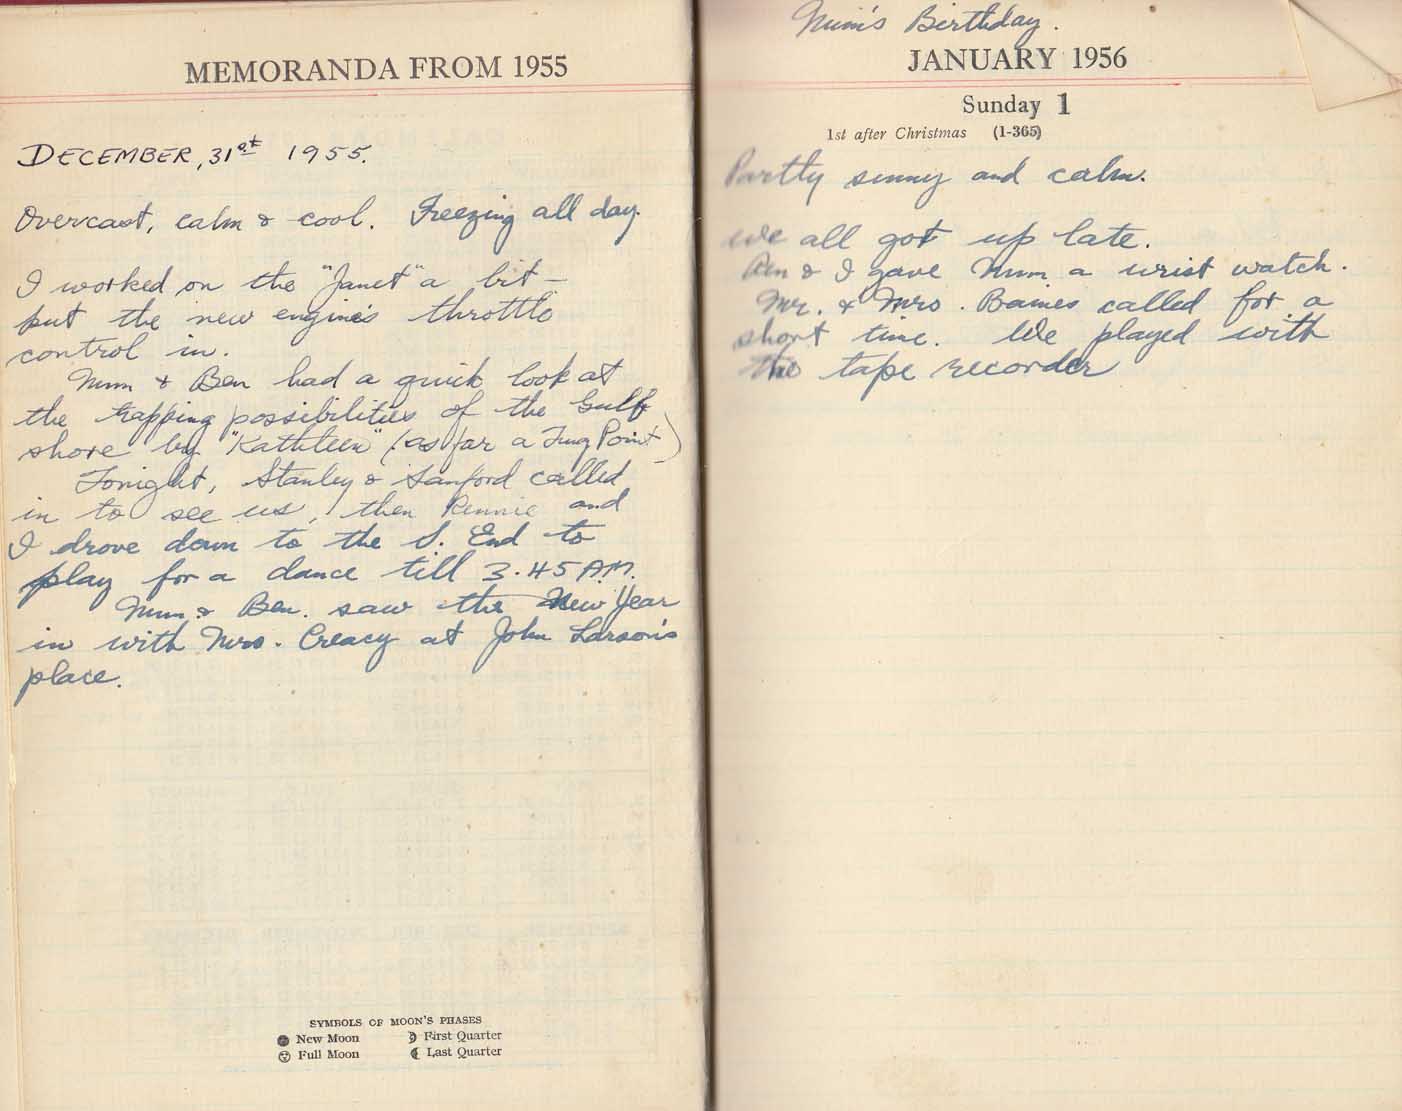 MEMORANDA FROM 1955
DECEMBER, 31st 1955.
Overcast, calm & cool. Freezing all day.
I worked on the "Janet" a bit –
put the new engine's throttle
control in.
Mum & Ben had a quick look at
the trapping possibilities of the Gulf
shore by "Kathleen" (as far a Tung Point)
Tonight, Stanley & Sanford called
in to see us, then Rennie and
I drove down to the S. End to
play for a dance till 3.45 A.M.
Mum & Ben. saw the New Year
in with Mrs. Creacy at John Larson's
place.
SYMBOLS OF MOON'S PHASES
New Moon First Quarter
Full Moon Last Quarter
Mum's Birthday.
JANUARY 1956
Sunday 1
1st after Christmas (1-365)
Partly sunny and calm.
We all got up late.
Ben & I gave Mum a wrist watch.
Mr. & Mrs. Baines called for a
short time. We played with
the tape recorder